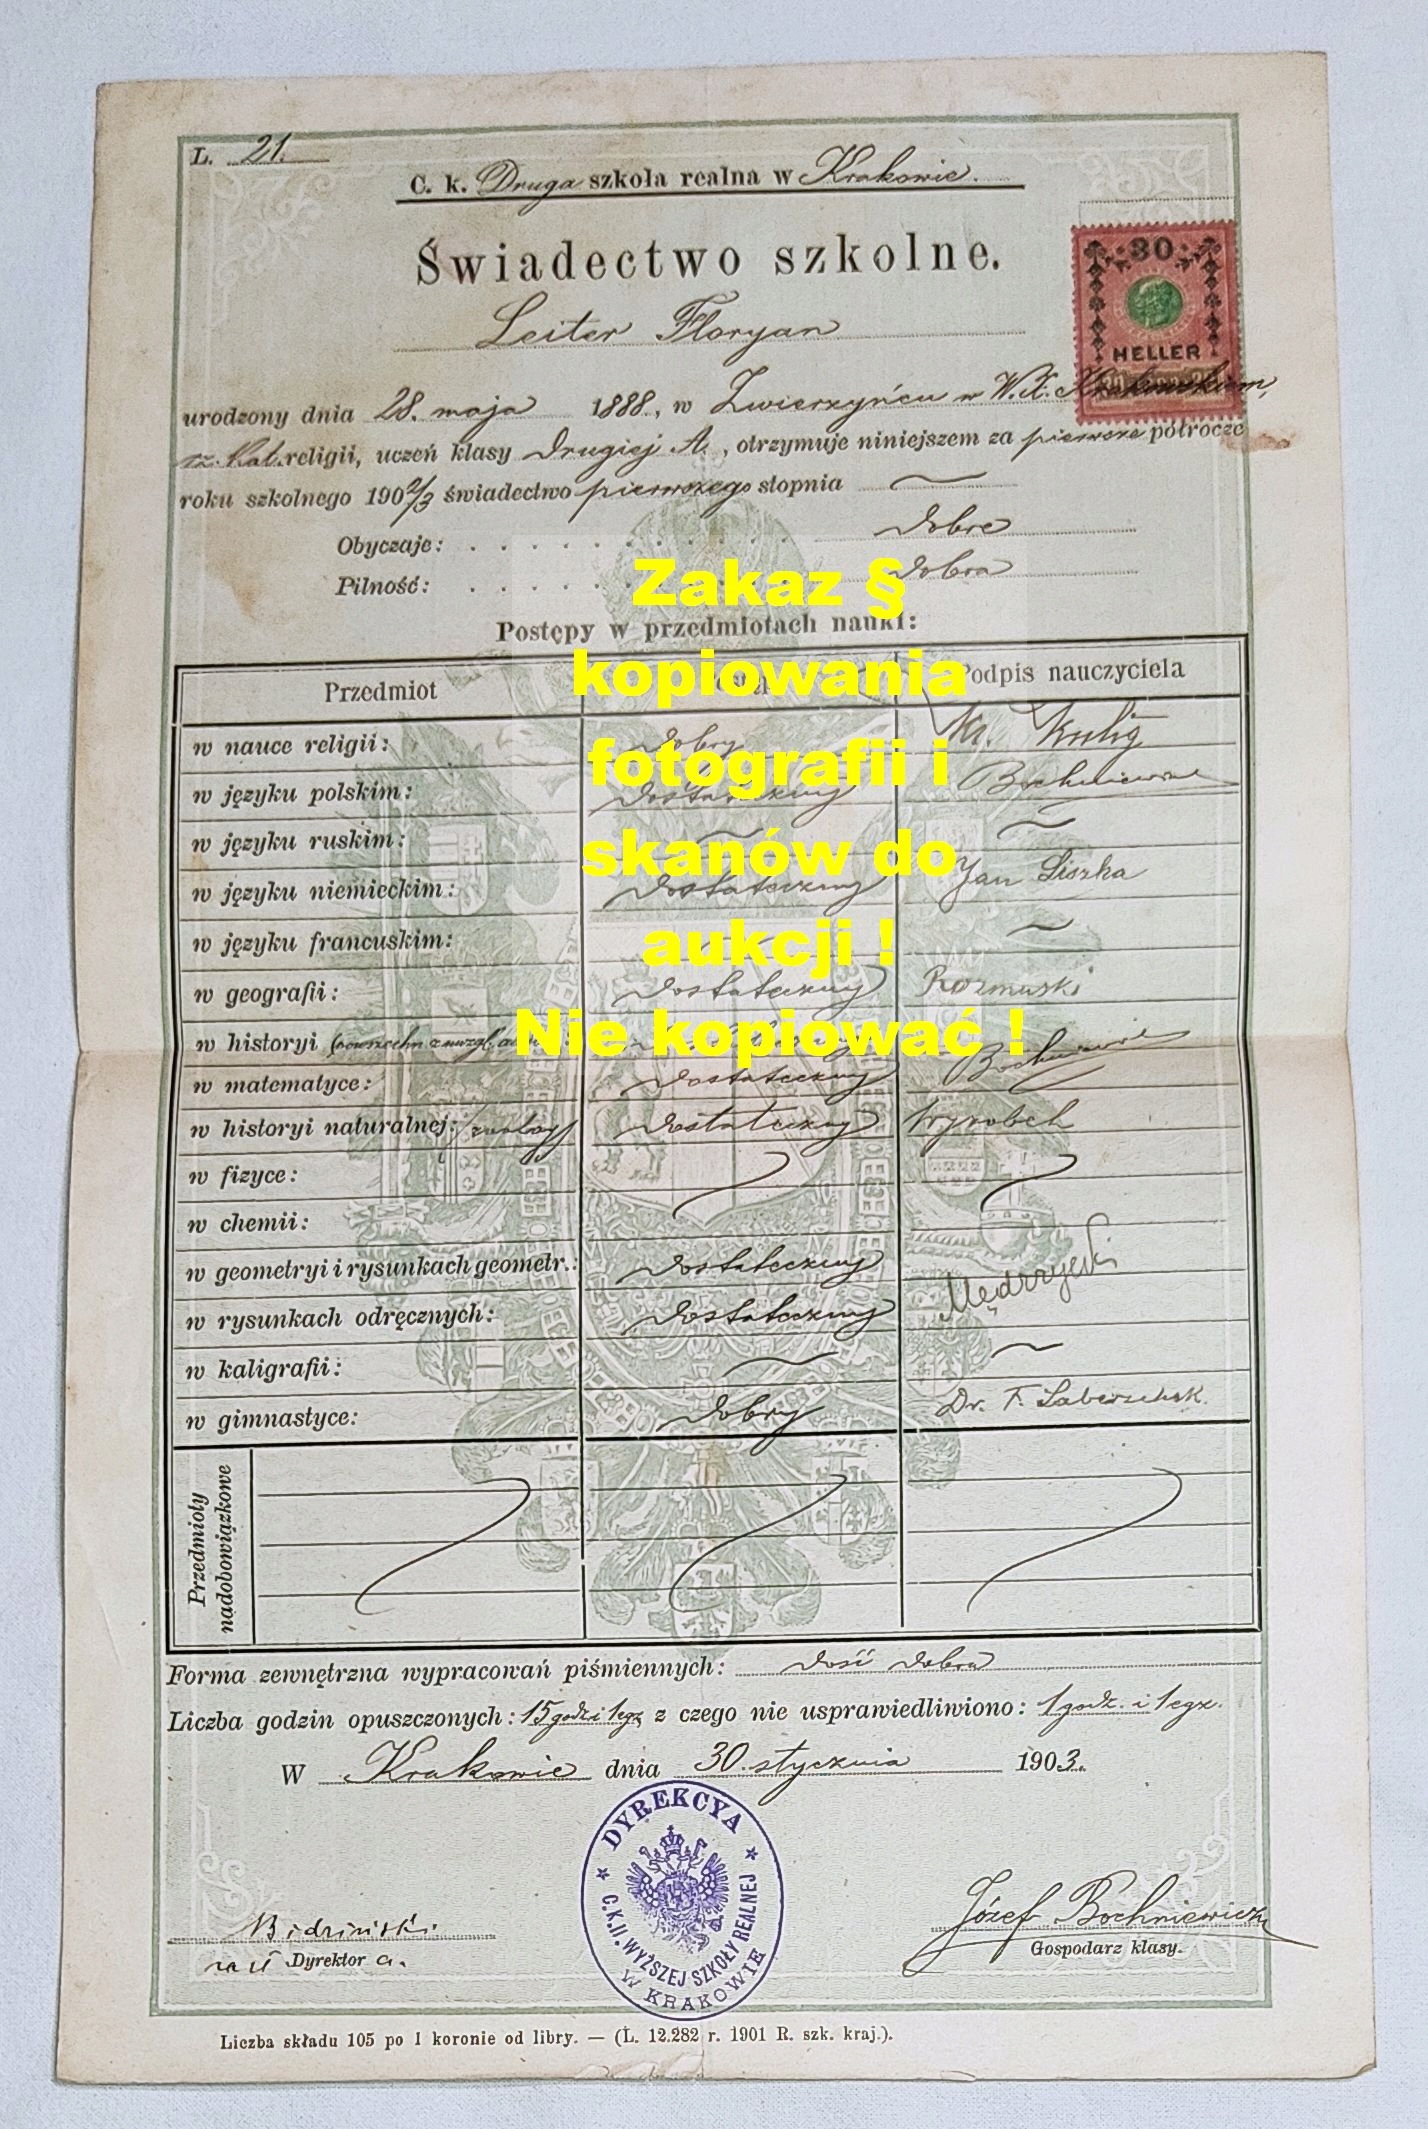 L. 21.
C. k. Druga szkoła realna w Krakowie.
Świadectwo szkolne.
30
HELLER
Leiter Floryan
urodzony dnia 28. maja 1888., w Zwierzyńcu w W. X. Krakowskiem,
rz. kat. religii, uczeń klasy Drugiej A., otrzymuje niniejszem za pierwsze półrocze
roku szkolnego 1902/3 świadectwo pierwszego stopnia
Obyczaje: dobre
Pilność: dobra
Postępy w przedmiotach nauki:
Przedmiot Podpis nauczyciela
w nauce religii: dobry
w języku polskim: dostateczny
w języku ruskim:
w języku niemieckim: dostateczny Jan Liszka
w języku francuskim:
w geografii: dostateczny Rozmuski
w historyi
w matematyce: dostateczny
w historyi naturalnej: dostateczny
w fizyce:
w chemii:
w geometryi i rysunkach geometr.: dostateczny
w rysunkach odręcznych: dostateczny
w kaligrafii:
w gimnastyce: dobry Dr. F.
Przedmioty
nadobowiązkowe
Forma zewnętrzna wypracowań piśmiennych: dość dobra
Liczba godzin opuszczonych: 15 godz. i 1 egz z czego nie usprawiedliwiono: 1 godz. i 1 egz.
W Krakowie dnia 30. stycznia 1903.
DYREKCYA
C. K. II. WYŻSZEJ SZKOŁY REALNEJ
W KRAKOWIE
Dyrektor
Józef Bochniewicz
Gospodarz klasy.
Liczba składu 105 po 1 koronie od libry. — (L. 12.282 r. 1901 R. szk. kraj.).
Zakaz §
kopiowania
fotografii i
skanów do
aukcji !
Nie kopiować !